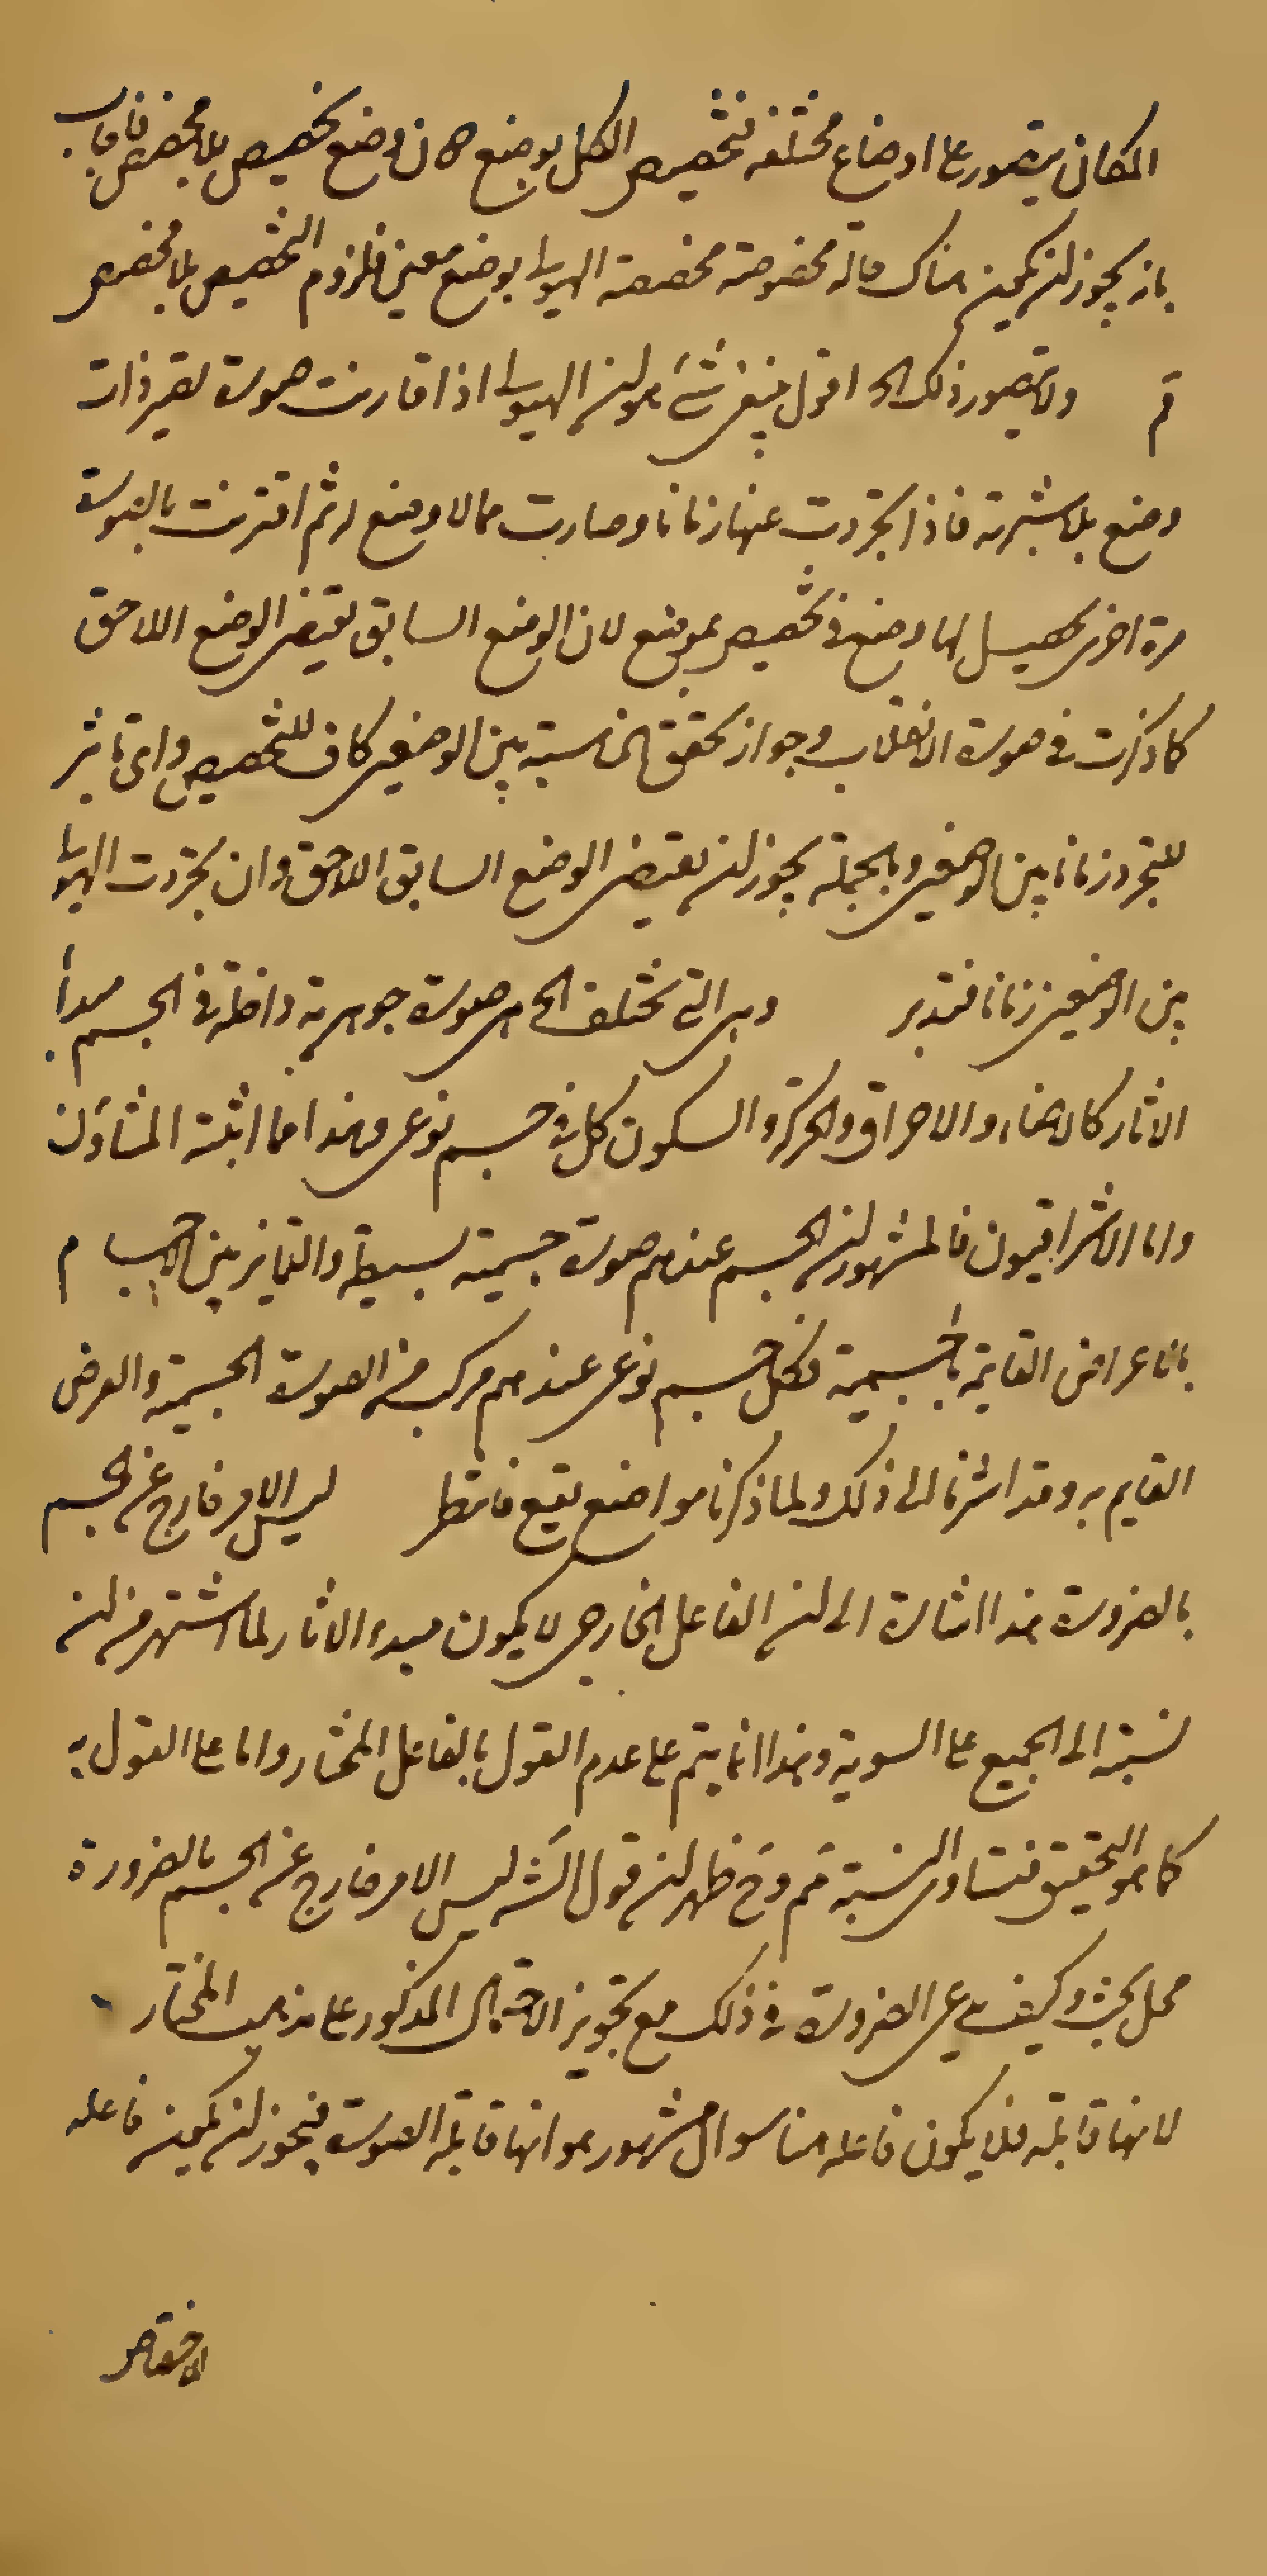 المكان يتصور على اوضاع مختلفه فتخصيص الكل بوضع دون وضع تخصيص بلا مخصص فاجاب
بانه يجوز ان يكون هناك حالة مخصوصة مخصصة الهيولى بوضع معين فلزوم التخصيص بلا مخصص
مم ولا يتصور ذلك الخ اقول فيه شئ هو ان الهيولى اذا قارنت صورة تصير ذات
وضع بلا شبهة فاذا تجردت عنها زمانا وصارت مما لا وضع له ثم اقترنت بالصورة
مرة اخرى يحصل لها وضع فتخصيص بموضع لان الوضع السابق يقتضى الوضع اللاحق
كما ذكرت في صورة الانقلاب وجواز تحقق المناسبة بين الوضعين كاف للتخصيص واى تاثير
للتجرد زمانا بين الوضعين وبالجملة يجوز ان يقتضى الوضع السابق اللاحق وان تجردت الهيولى
بين الوضعين زمانا فتدبر وهى التى تختلف الخ هى صورة جوهرية داخلة في الجسم مبدأ
الاثار كالاضاءة والاحراق والحركة والسكون كل في جسم نوعى وهذا مما اثبته المشاؤن
واما الاشراقيون فالمشهور ان الجسم عندهم صورة جسمية بسيطة والتمايز بين الاجسام
بالاعراض القايمة بالجسمية فكل جسم نوعى عندهم مركب من الصورة الجسمية والعرض
القايم به وقد اشرنا الى ذلك ولما ذكرنا مواضع نقع فانتظر ليس الامر خارج عن الجسم
بالضرورة هذا اشارة الى ان الفاعل الخارجى لا يكون مبدء الاثار لما اشتهر من ان
نسبته الى الجميع على السوية وهذا انما يتم على عدم القول بالفاعل المختار واما على القول به
كما هو التحقيق فتساوى النسبة مم وح ظهر ان قول الش ليس الامر خارج عن الجسم بالضرورة
محل بحث وكيف يدعى الضرورة في ذلك مع تجويز الاحتمال المذكور على مذهب المختار
لانها قابلة فلا يكون فاعله هنا سوال مشهور هو انها قابلة الصورة فيجوز ان يكون فاعله